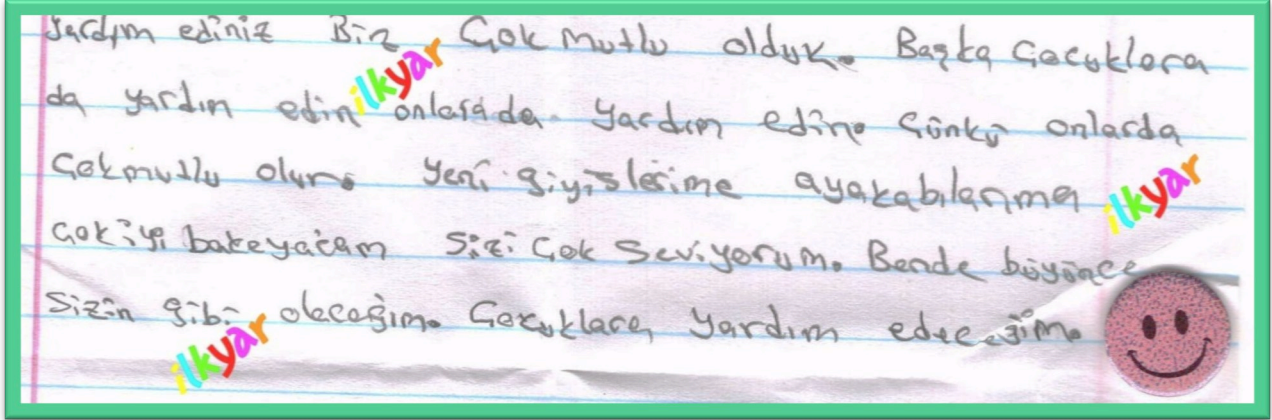 yardım ediniz Biz Çok mutlu olduk. Başka Çocuklara
ilkyar
da yardın edin onlarada yardım edin. Günkü onlarda
Çokmutlu olur. yeni giyislerime ayakabılarıma
ilkyar
çok iyi bakeyacam sizi Çok Seviyorum. Bende büyünce
sizin gibi olacağım. Çocuklara yardım edeceğim.
ilkyar